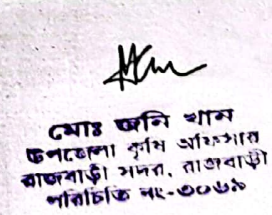 মোঃ জনি খান
উপজেলা কৃষি অফিসার
রাজবাড়ী সদর, রাজবাড়ী
পরিচিতি নং-৩০৬৯